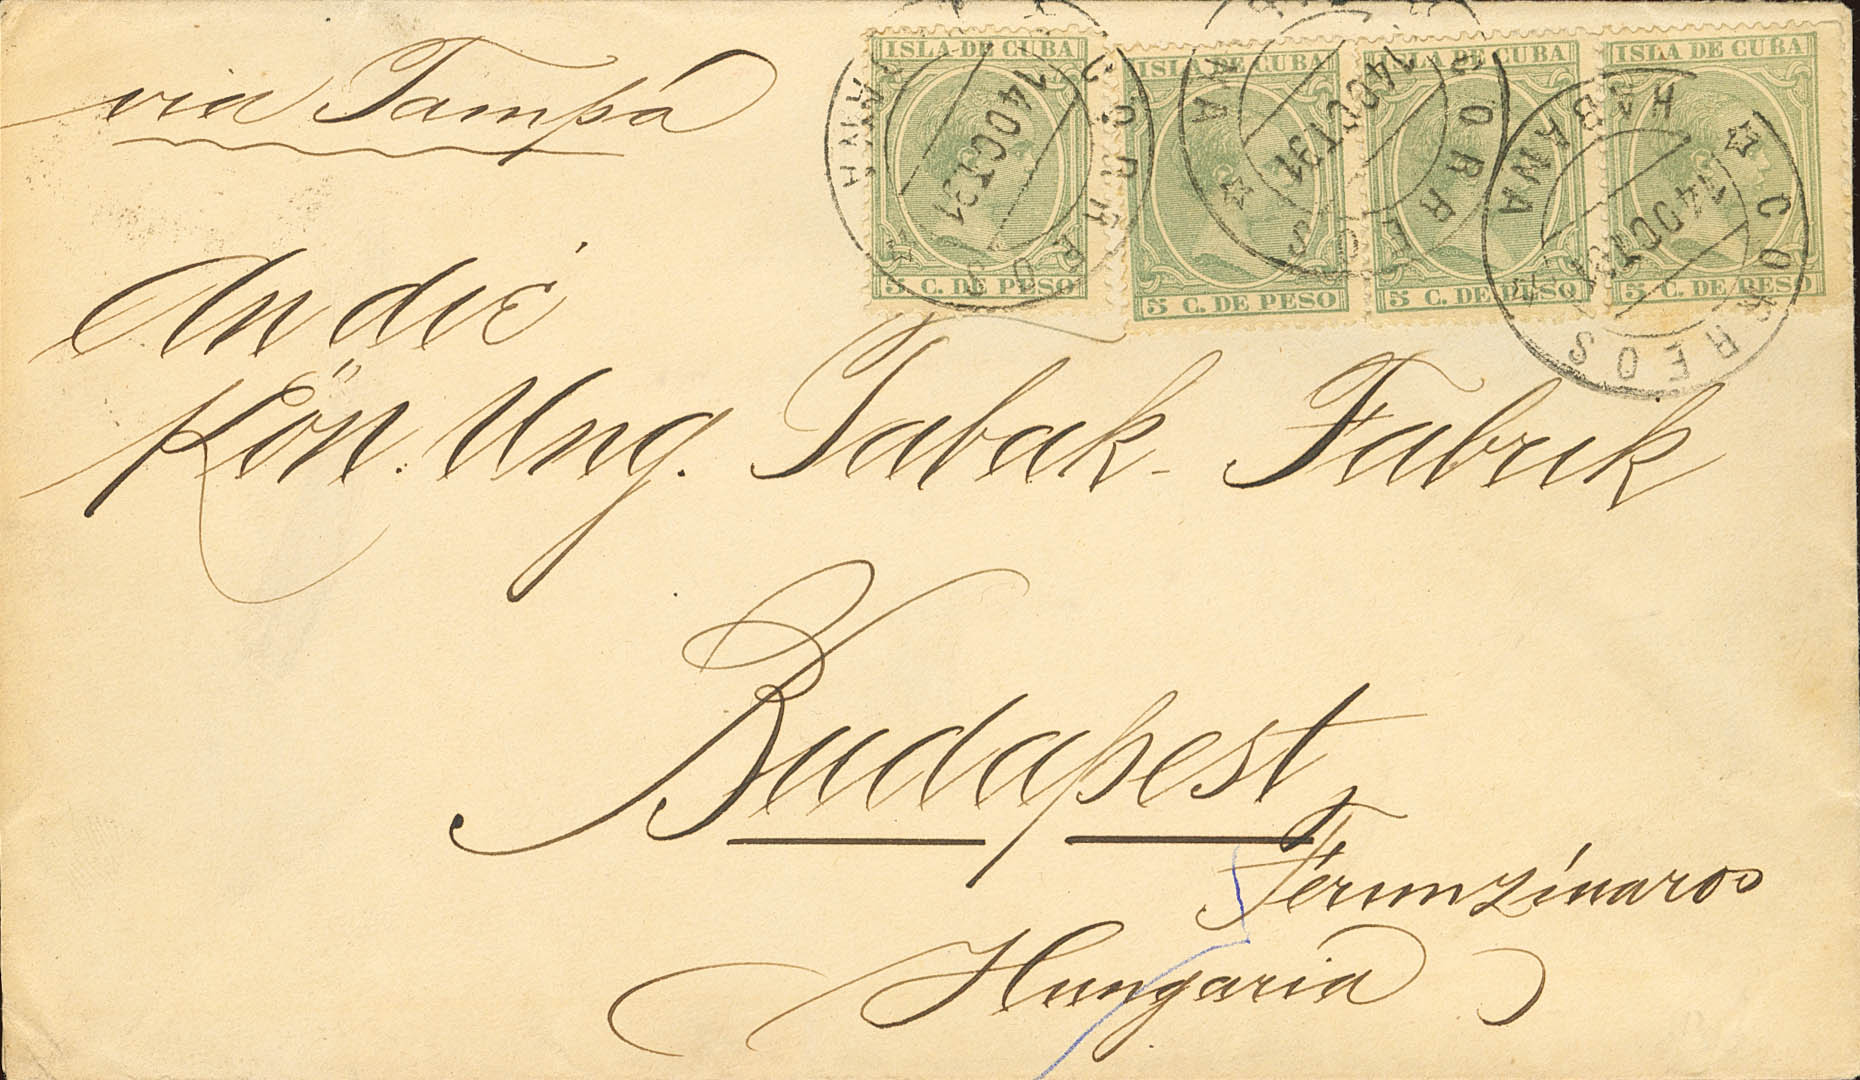 via Tampa
ISLA DE CUBA
5 C. DE PESO
ISLA DE CUBA
5 C. DE PESO
ISLA DE CUBA
5 C. DE PESO
ISLA DE CUBA
5 C. DE PESO
CORREOS
14 OCT 91
HABANA
CORREOS
14 OCT 91
CORREOS
14 OCT 91
HABANA
An die
Kön. Ung. Tabak-Fabrik
Budapest
Hungaria